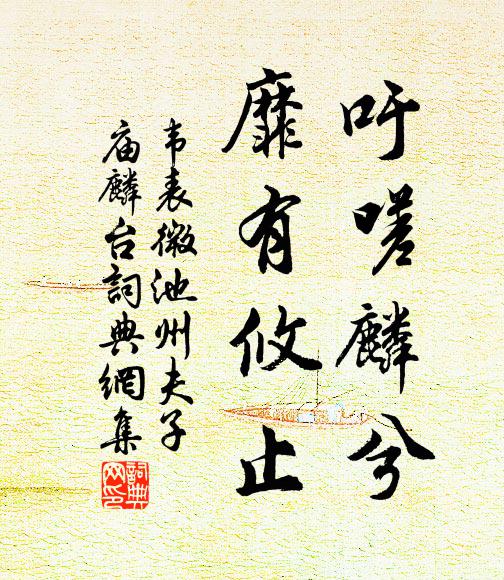 吁嗟麟兮
靡有攸止
韦表微池州夫子
庙麟台詞典網集
詞典网印